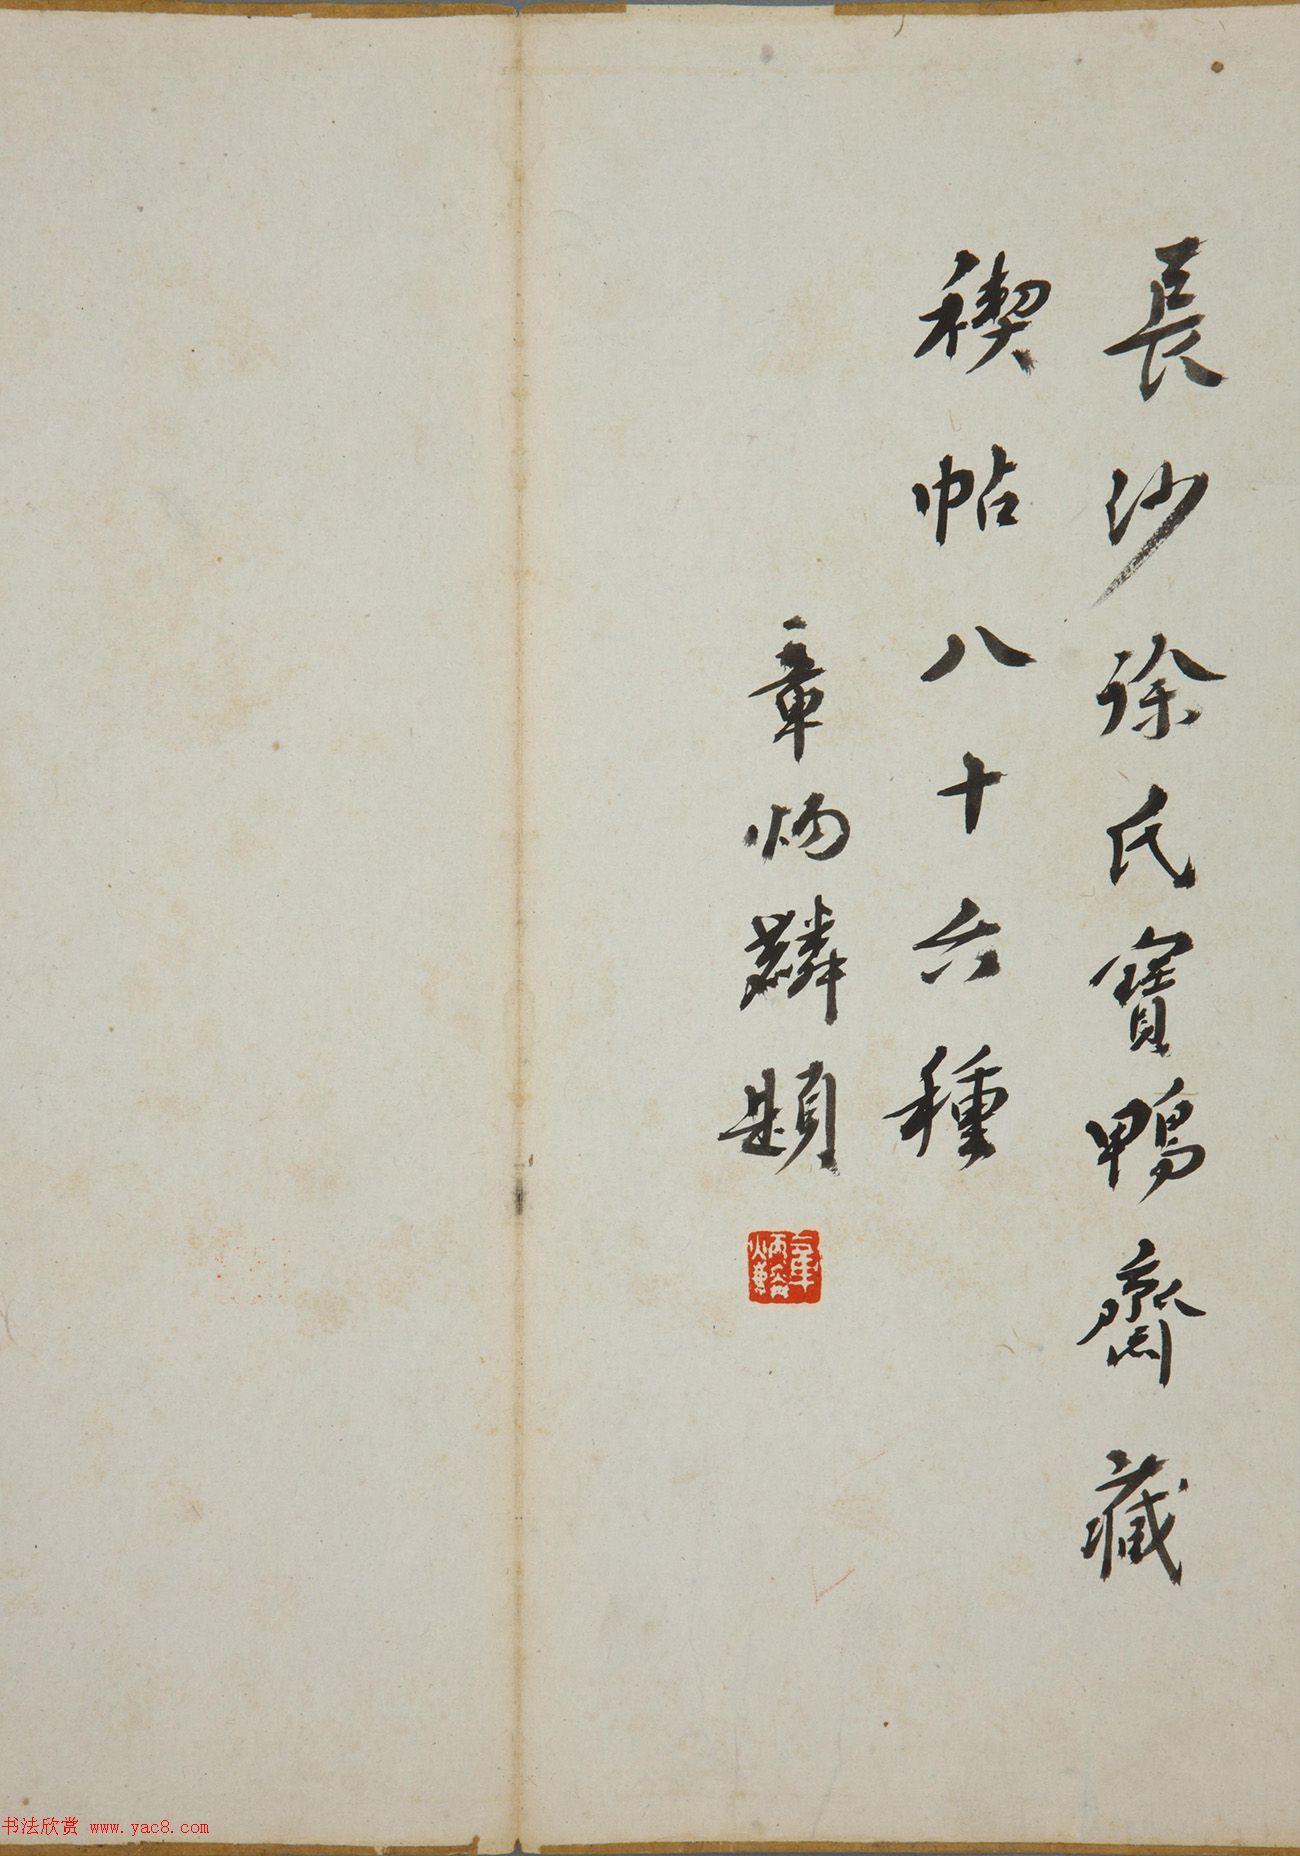 長沙徐氏寶鴨齋藏
禊帖八十六種
章炳麟題
书法欣赏 www.yac8.com